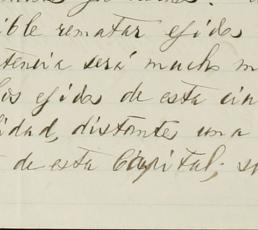 ible rematar ejidos
tencia será mucho m
los ejidos de esta ciu
lidad, distante una
de esta Capital; s